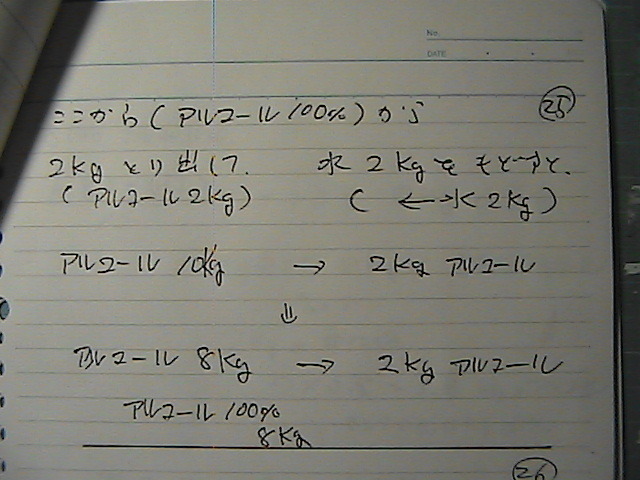 No.
DATE
㉕
ここから(アルコール100%)から
2kg とり出して. 水 2kg を
(アルコール 2kg) (←→水 2kg)
アルコール 10kg → 2kg アルコール
⇓
アルコール 8kg → 2kg アルコール
アルコール 100%
8kg
㉖